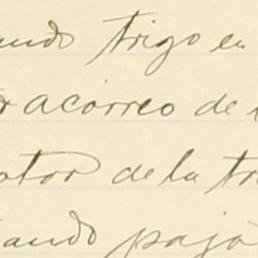 ando trigo en
acarreo de l
otor de la tr
ando paja